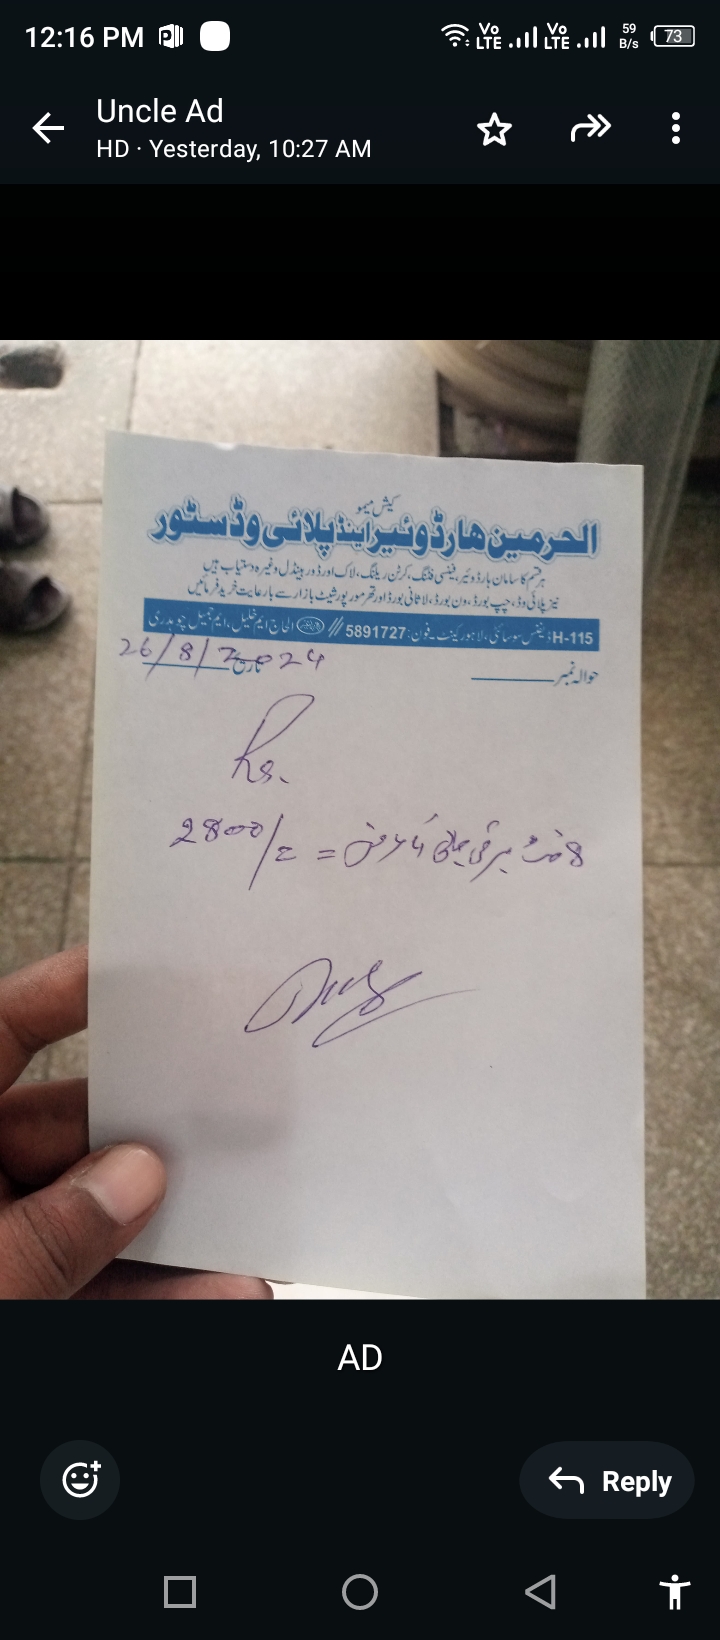 12:16 PM
Vo LTE Vo LTE 59 B/s 73
Uncle Ad
HD · Yesterday, 10:27 AM
کیش میمو
الحرمین ھارڈوئیر اینڈ پلائی وڈ سٹور
ہر قسم کا سامان ہارڈوئیر، فینسی فٹنگ، کرٹن ریلنگ، لاک اور ڈور ہینڈل وغیرہ دستیاب ہیں
نیز پلائی وڈ، چپ بورڈ، ون بورڈ، لاثانی بورڈ اور تھرموپور شیٹ بازار سے بارعایت خرید فرمائیں
H-115 ڈیفنس سوسائٹی، لاہور کینٹ۔ فون: 5891727 // الحاج ایم خلیل، ایم جمیل چوہدری
حوالہ نمبر تاریخ 26/8/2024
Rs.
8 فٹ = 2800/=
AD
Reply